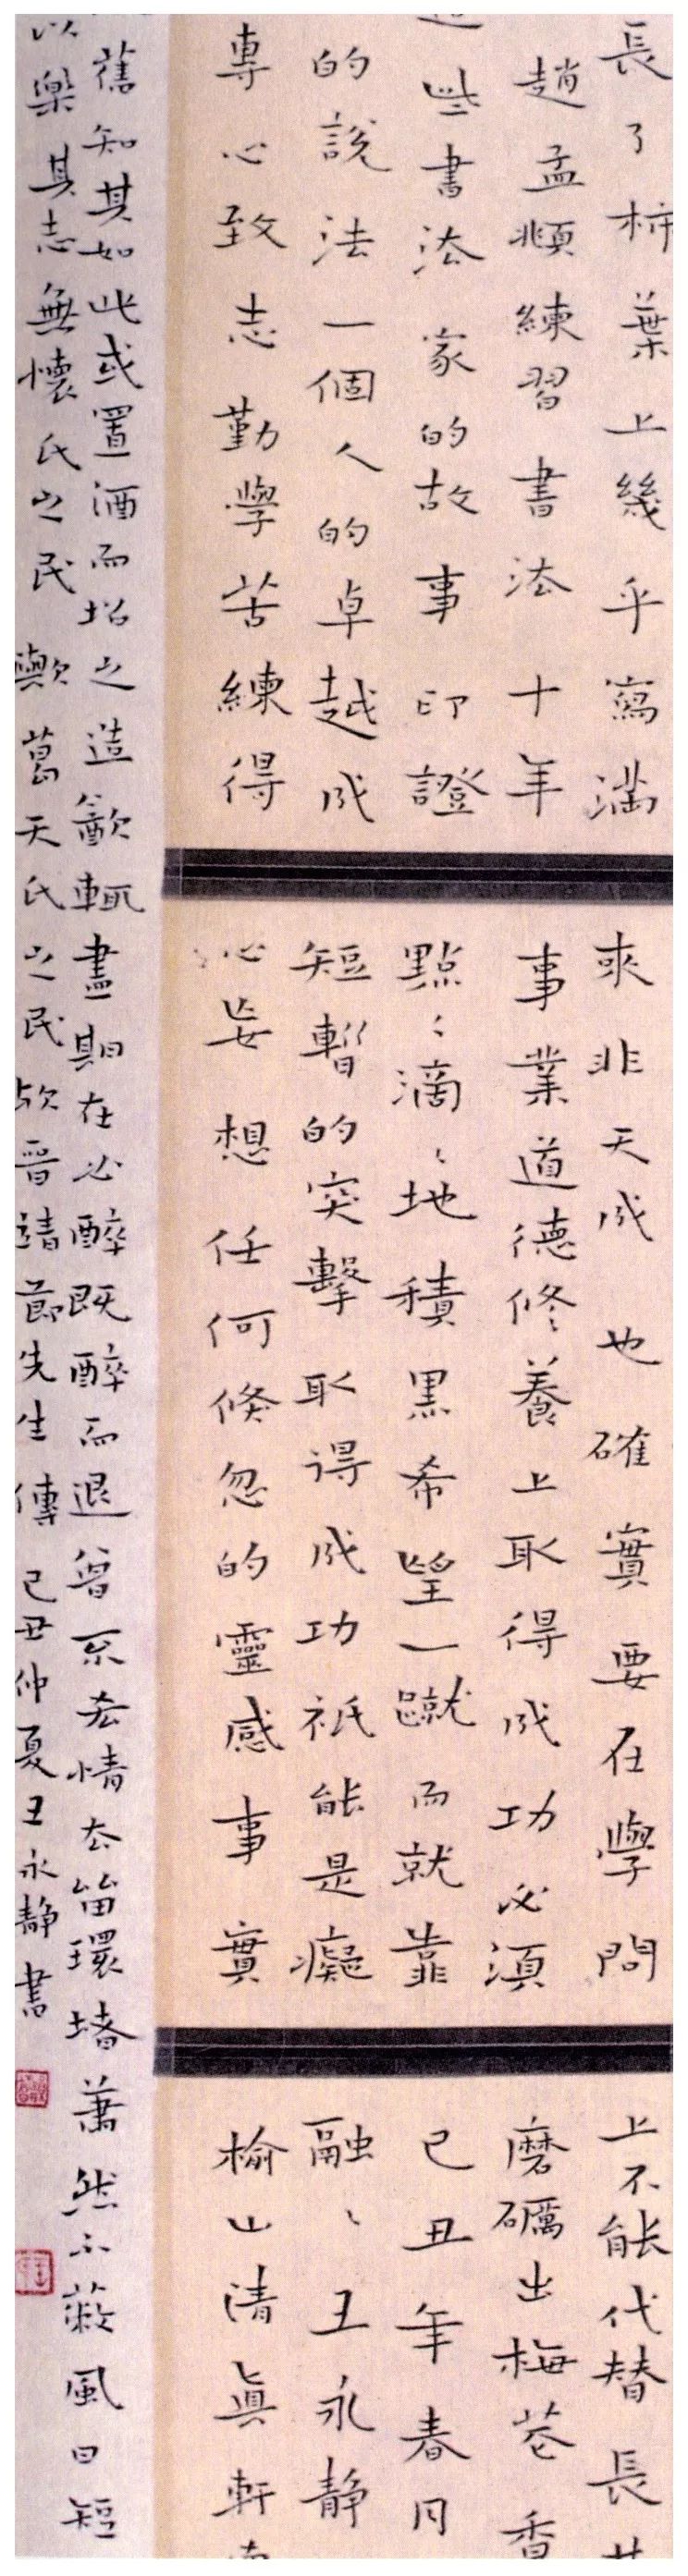 長了柿葉上幾乎寫滿
趙孟頫練習書法十年
這些書法家的故事印證
的說法一個人的卓越成
專心致志勤學苦練得
來非天成也確實要在學問
事業道德修養上取得成功必須
點〻滴〻地積累希望一蹴而就靠
短暫的突擊取得成功祇能是癡
心妄想任何倏忽的靈感事實
上不能代替長
磨礪出梅花香
己丑年春月
融〻王永靜
榆山清真軒
舊知其如此或置酒而招之造飲輒盡期在必醉既醉而退曾不吝情去留環堵蕭然不蔽風日短
以樂其志無懷氏之民歟葛天氏之民歟晉靖節先生傳己丑仲夏王永靜書